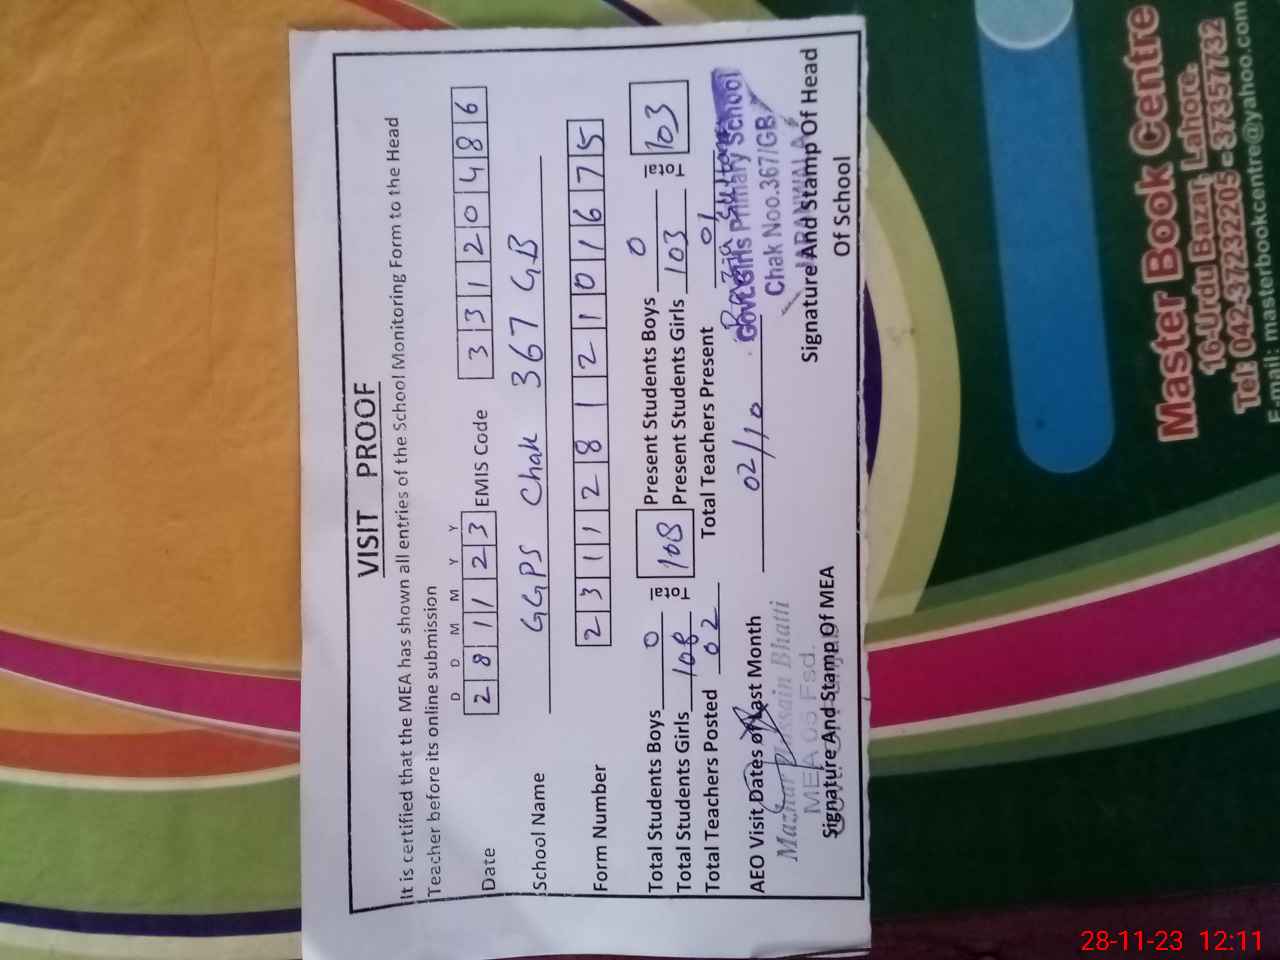 VISIT PROOF
It is certified that the MEA has shown all entries of the School Monitoring Form to the Head
Teacher before its online submission
D D M M Y Y
Date 2 8 1 1 2 3 EMIS Code 3 3 1 2 0 4 8 6
School Name GGPS Chak 367 GB
Form Number 2 3 1 1 2 8 1 2 1 0 1 6 7 5
Total Students Boys 0 Total 108 Present Students Boys 0 Total 103
Total Students Girls 108 Present Students Girls 103
Total Teachers Posted 02 Total Teachers Present 01
AEO Visit Dates of Last Month 02/10
Razia Sultana
Govt.Girls Primary School
Chak Noo.367/GB
JARANWALA
Mazhar Hussain Bhatti
MEA 05 Fsd.
Signature And Stamp Of MEA
Signature And Stamp Of Head
Of School
Master Book Centre
16-Urdu Bazar, Lahore.
Tel: 042-37232205 - 37357732
E-mail: masterbookcentre@yahoo.com
28-11-23 12:11